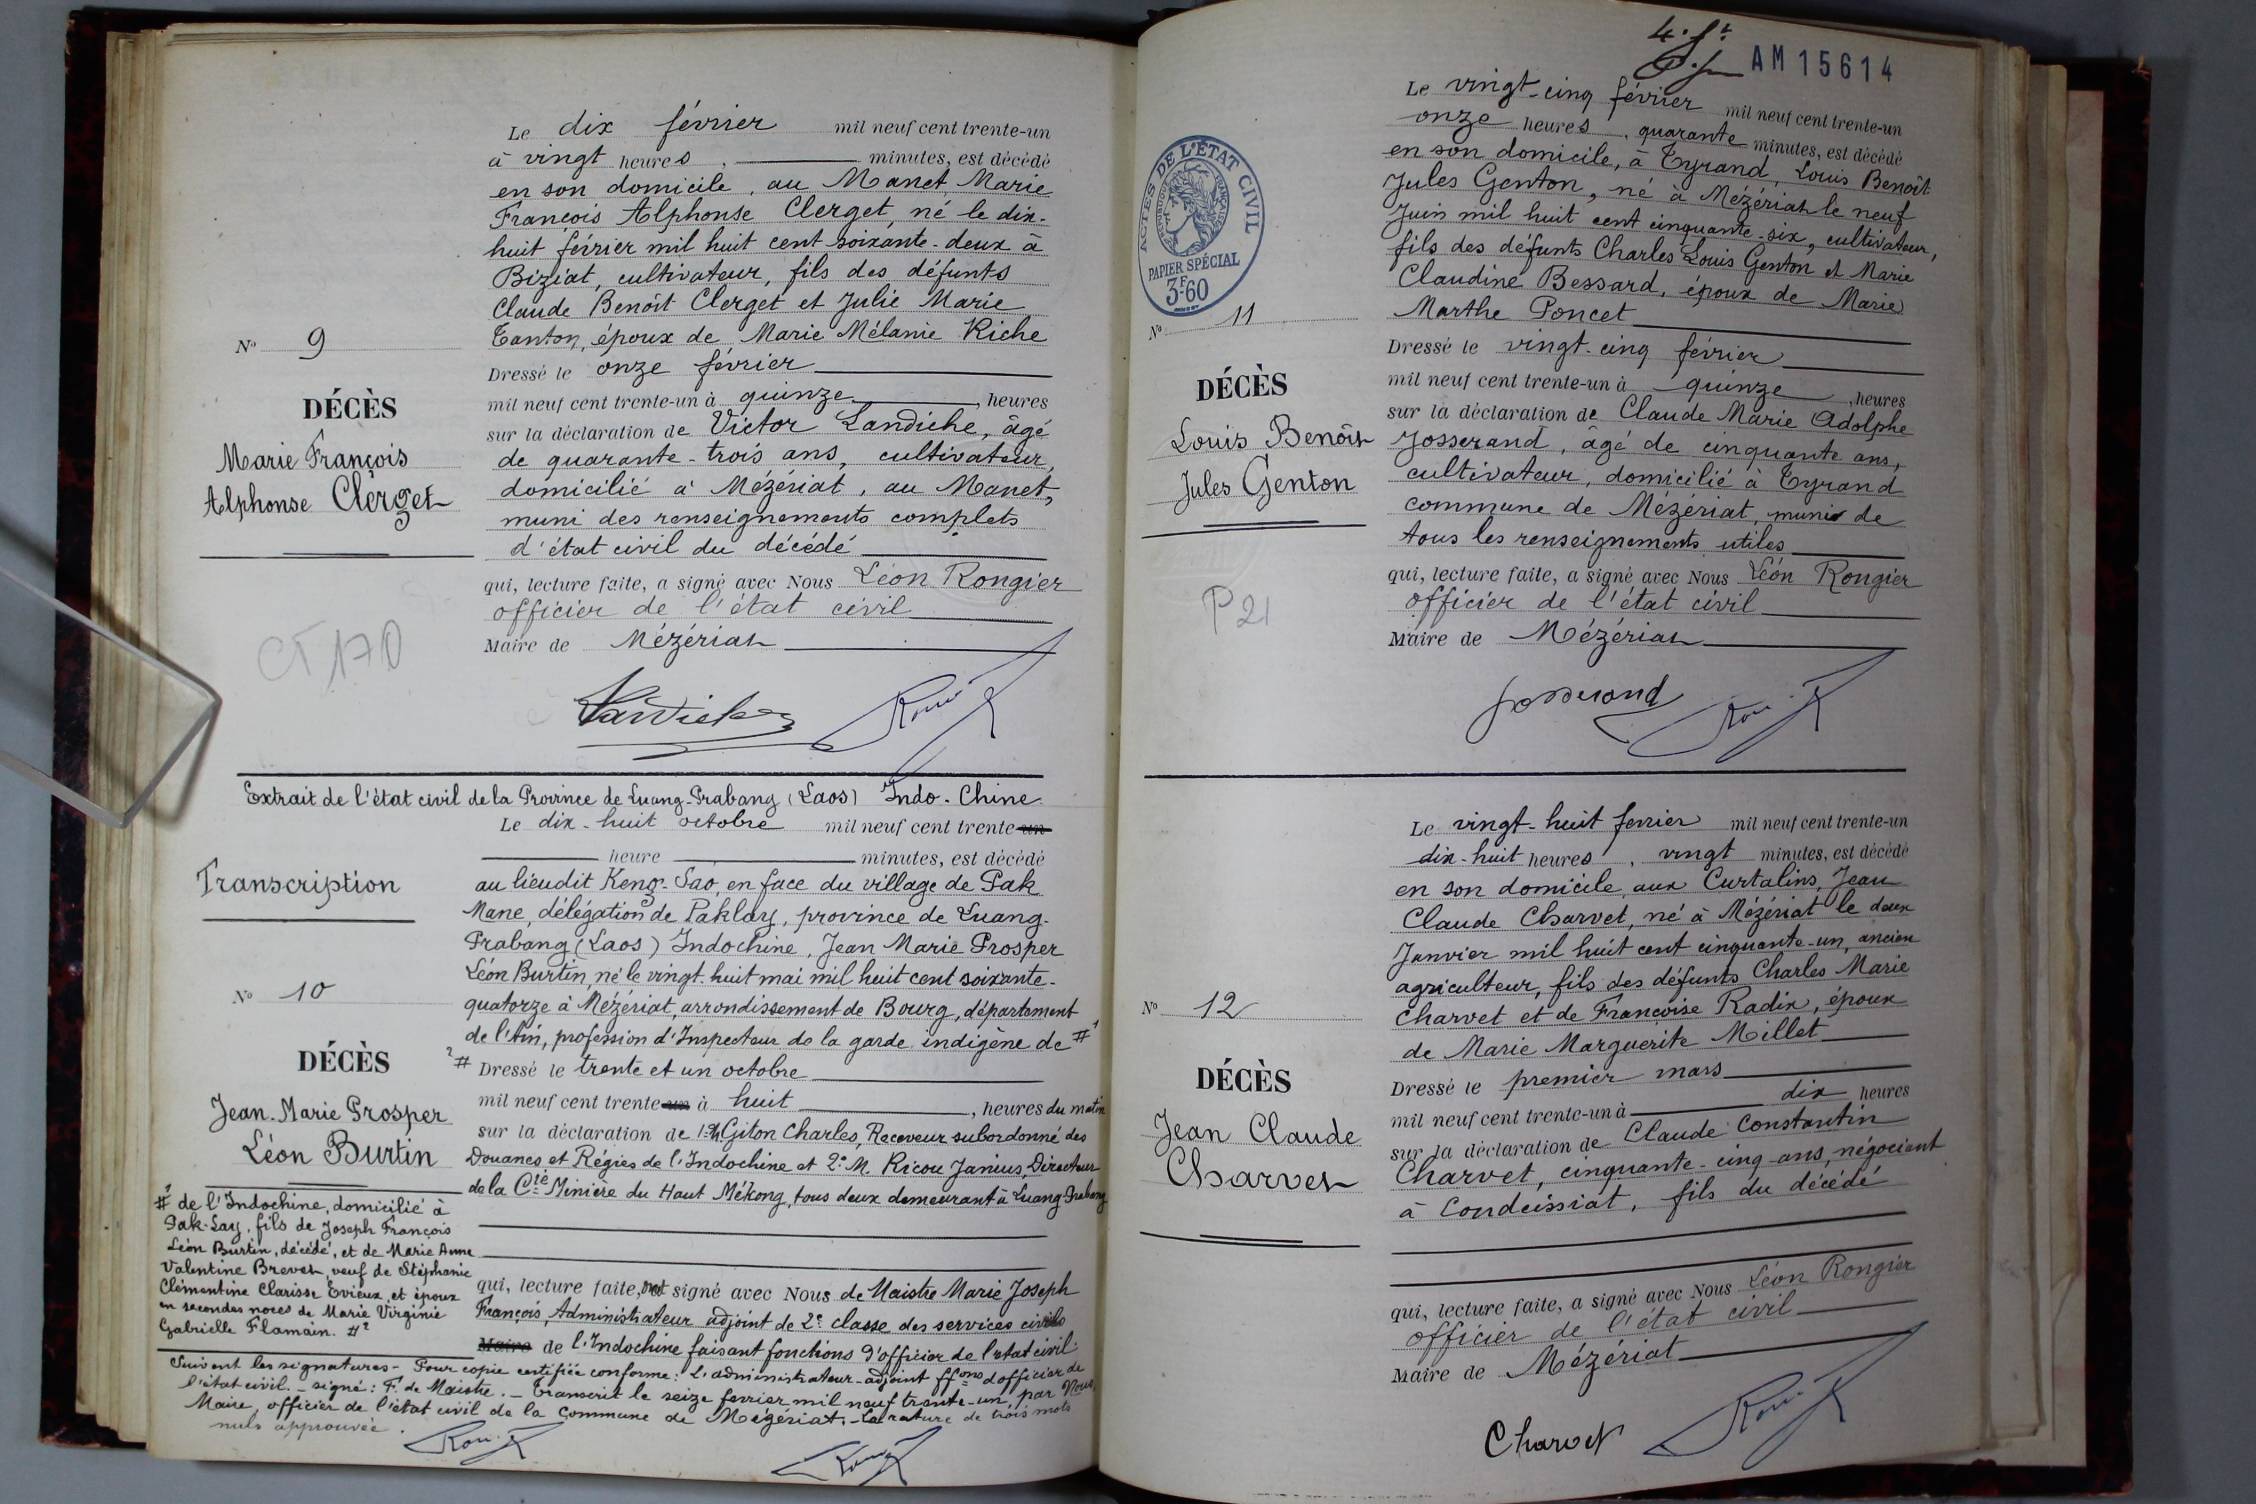 Le dix février mil neuf cent trente-un
à vingt heures, minutes, est décédé
en son domicile, au Manet, Marie
François Alphonse Clerget, né le dix-
huit février mil huit cent soixante-deux à
Biziat, cultivateur, fils des défunts
Claude Benoît Clerget et Julie Marie
Tanton, époux de Marie Mélanie Riche
Dressé le onze février
mil neuf cent trente-un à quinze, heures
sur la déclaration de Victor Landiche, âgé
de quarante-trois ans, cultivateur,
domicilié à Mézériat, au Manet,
muni des renseignements complets
d'état civil du décédé
qui, lecture faite, a signé avec Nous Léon Rongier
officier de l'état civil
Maire de Mézériat
N° 9
DÉCÈS
Marie François
Alphonse Clerget
CT 170
Extrait de l'état civil de la Province de Luang-Prabang (Laos) Indo-Chine
Le dix-huit octobre mil neuf cent trente-un
heure minutes, est décédé
au lieudit Keng-Sao, en face du village de Pak
Mane, délégation de Paklay, province de Luang-
Prabang (Laos) Indochine, Jean Marie Prosper
Léon Burtin, né le vingt-huit mai mil huit cent soixante-
quatorze à Mézériat, arrondissement de Bourg, département
de l'Ain, profession d'Inspecteur de la garde indigène de #1
2# Dressé le trente et un octobre
mil neuf cent trente-un à huit, heures du matin
sur la déclaration de 1° M Giton Charles, Receveur subordonné des
Douanes et Régies de l'Indochine et 2° M. Ricou Janius, Directeur
de la Cie Minière du Haut Mékong, tous deux demeurant à Luang-Prabang
qui, lecture faite, ont signé avec Nous de Maistre Marie Joseph
François, Administrateur adjoint de 2e classe des services civils
Maire de l'Indochine faisant fonctions d'officier de l'état civil.
Transcription
N° 10
DÉCÈS
Jean-Marie Prosper
Léon Burtin
#1 de l'Indochine, domicilié à
Pak-Lay, fils de Joseph François
Léon Burtin, décédé, et de Marie Anne
Valentine Brevet, veuf de Stéphanie
Clémentine Clarisse Evieux et époux
en secondes noces de Marie Virginie
Gabrielle Flamain. #2
Suivent les signatures - Pour copie certifiée conforme: L'administrateur-adjoint ffons d'officier de
l'état civil. - signé: F. de Maistre. - Transcrit le seize fevrier mil neuf trente-un, par Nous,
Maire, officier de l'état civil de la Commune de Mézériat. - La rature de trois mots
nuls approuvée.
AM 15614
ACTES DE L'ÉTAT CIVIL
PAPIER SPÉCIAL
3F60
Le vingt-cinq février mil neuf cent trente-un
onze heures, quarante minutes, est décédé
en son domicile, à Tyrand, Louis Benoît
Jules Genton, né à Mézériat le neuf
Juin mil huit cent cinquante-six, cultivateur,
fils des défunts Charles Louis Genton et Marie
Claudine Bessard, époux de Marie
Marthe Poncet
Dressé le vingt-cinq février
mil neuf cent trente-un à quinze, heures
sur la déclaration de Claude Marie Adolphe
Josserand, âgé de cinquante ans,
cultivateur, domicilié à Tyrand
commune de Mézériat, muni de
tous les renseignements utiles
qui, lecture faite, a signé avec Nous Léon Rongier
officier de l'état civil
Maire de Mézériat
Josserand
N° 11
DÉCÈS
Louis Benoît
Jules Genton
P 21
Le vingt-huit fevrier mil neuf cent trente-un
dix-huit heures, vingt minutes, est décédé
en son domicile aux Curtalins, Jean
Claude Charvet, né à Mézériat le deux
Janvier mil huit cent cinquante-un, ancien
agriculteur, fils des défunts Charles Marie
Charvet et de Françoise Radix, époux
de Marie Marguerite Millet
Dressé le premier mars
mil neuf cent trente-un à dix heures
sur la déclaration de Claude Constantin
Charvet, cinquante-cinq ans, négociant
à Condeissiat, fils du décédé
qui, lecture faite, a signé avec Nous Léon Rongier
officier de l'état civil
Maire de Mézériat
Charvet
N° 12
DÉCÈS
Jean Claude
Charvet